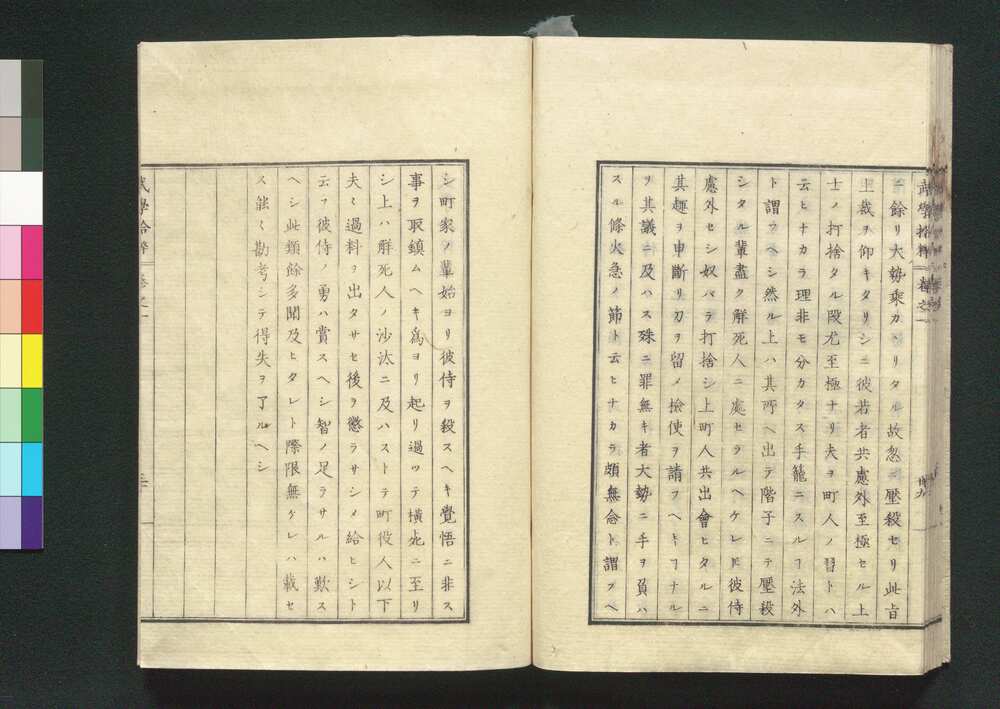 ニ餘リ大勢乘カヽリタル故忽ニ壓殺セリ此旨
上裁ヲ仰キタリシニ彼若者共慮外至極セル上
士ノ打捨タル段尤至極ナリ夫ヲ町人ノ習トハ
云ヒナカラ理非モ分カタス手籠ニスルヿ法外
ト謂ツヘシ然ル上ハ其所ヘ出テ階子ニテ壓殺
シタル輩盡ク解死人ニ處セラルヘケレ𪜈彼侍
慮外セシ奴バラ打捨シ上町人共出會ヒタルニ
其趣ヲ申斷リ刃ヲ留メ撿使ヲ請フヘキヿナル
ヲ其議ニ及ハス殊ニ罪無キ者大勢ニ手ヲ負ハ
スル條火急ノ節ト云ヒナカラ頗無念ト謂フヘ
シ町家ノ輩始ヨリ彼侍ヲ殺スヘキ覺悟ニ非ス
事ヲ取鎮ムヘキ爲ヨリ起リ過ツテ横死ニ至リ
シ上ハ解死人ノ沙汰ニ及ハストテ町役人以下
夫々過料ヲ出タサセ後ヲ懲ラサシメ給ヒシト
云フ彼侍ノ勇ハ賞スヘシ智ノ足ラサルハ歎ス
ヘシ此類餘多聞及ヒタレト際限無ケレハ載セ
ス能々勘考シテ得失ヲ了ルヘシ